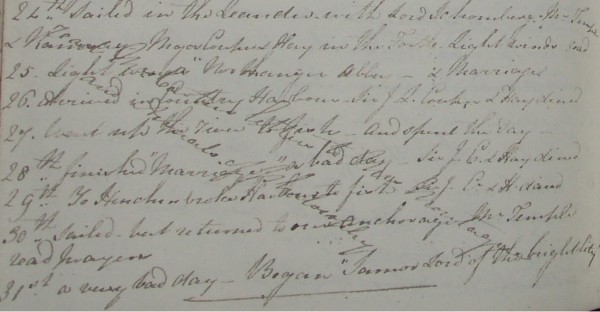 24th Sailed in the Leander with Lord Schomberg. Mr Temple
& Major Couper & Hay in the Forte. Light winds read
25. Light winds" Northanger Abbey - & Marriage
26. Arrived in Country Harbour Sir J. L. Couper & Hay dined
27. Went up the River to fish - And spent the day -
28th finished "Marriage" - a bad day - Sir J. C. & Hay dined
29th. To Hinchinbroke Harbour to fish - Sir J. C. & H. dined
30th Sailed but returned to our anchorage Mr Temple
read prayers
31st a very bad day - Began "Samor Lord of the bright City